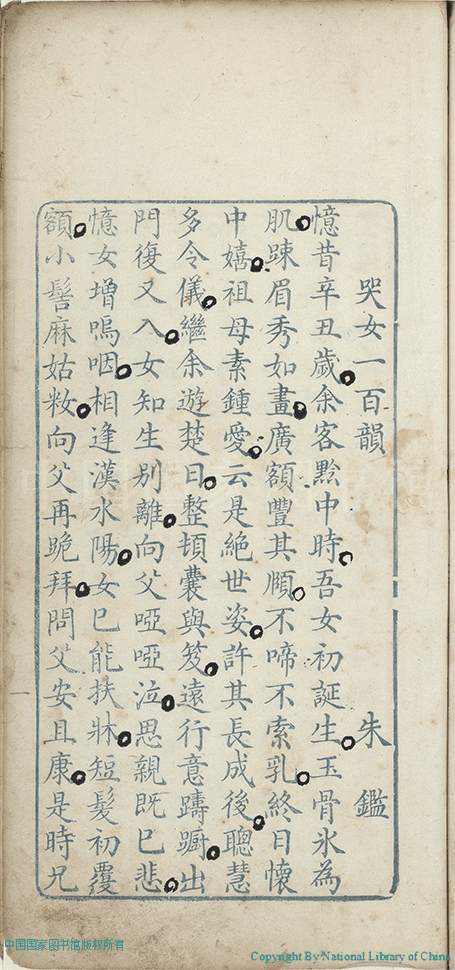 哭女一百韻 朱鑑
憶昔辛丑歲余客黔中時吾女初誕生玉骨氷為
肌踈眉秀如畫廣額豐其頤不啼不索乳終日懷
中嬉祖母素鍾愛云是絕世姿許其長成後聰慧
多令儀繼余遊楚日整頓囊與笈遠行意躊躕出
門復又入女知生別離向父啞啞泣思親既已悲
憶女增嗚咽相逢漢水陽女已能扶牀短髮初覆
額小髻麻姑粧向父再跪拜問父安且康是時兄
一
中国国家图书馆版权所有
Copyright By National Library of China